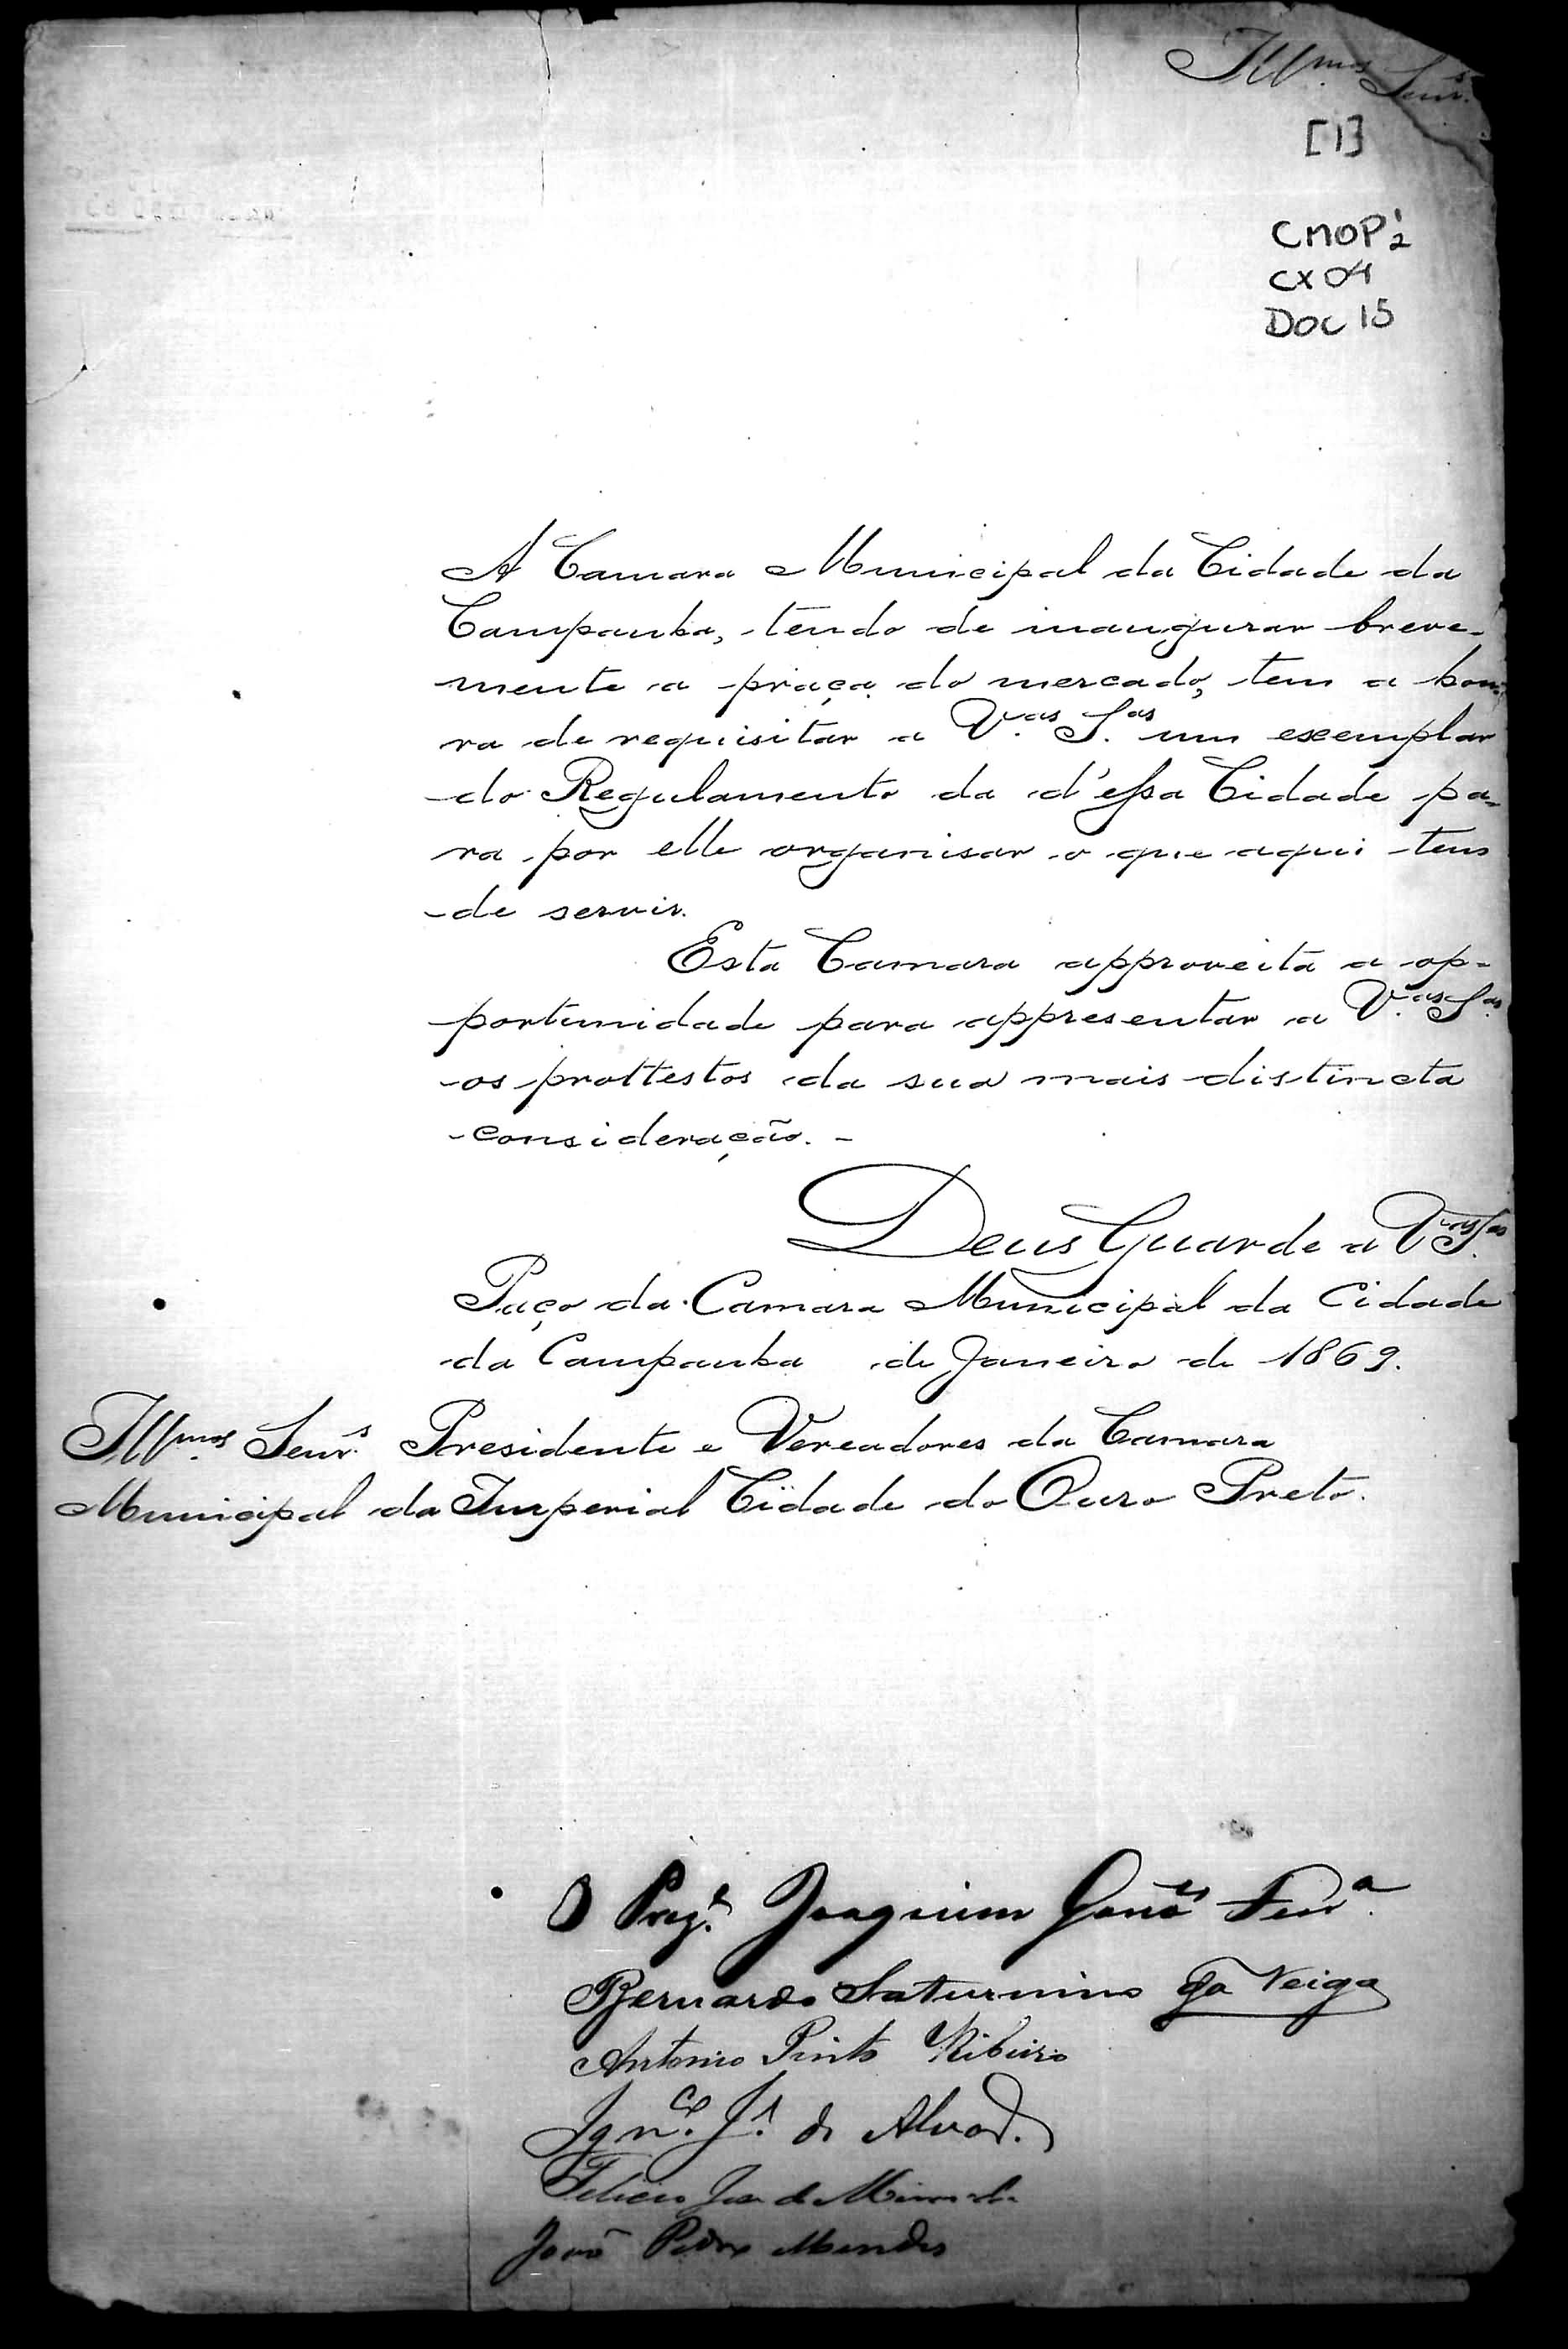 Illmos. Senrs.
[1]
CMOP 1/2
CX 04
DOC 15
A Camara Municipal da Cidade da
Campanha, tendo de inaugurar breve-
mente a praça do mercado, tem a hon-
ra de requisitar a V.as S.as um exemplar
do Regulamento da d'essa Cidade pa-
ra por elle organisar o que aqui tem
de servir.
Esta Camara approveita a op-
portunidade para appresentar a V.as S.as
os prottestos da sua mais distincta
consideração. -
Deus Guarde a V.as S.as
Paço da Camara Municipal da Cidade
da Campanha de Janeiro de 1869.
Illmos. Senrs. Presidente e Vereadores da Camara
Municipal da Imperial Cidade do Ouro Preto.
O Joaquim Ferra.
Bernardo Saturnino da Veiga
Antonio Pinto Ribeiro
Ignco. Je. de
Felicio Jose de Miranda
João Pedro Mendes